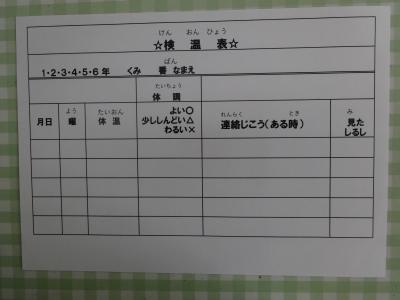 けん おん ひょう
☆検 温 表☆
ばん
1・2・3・4・5・6年 くみ 番 なまえ
たいちょう
体 調
よう たいおん れんらく とき み
月日 曜 体 温 よい〇 少ししんどい△ わるい× 連絡じこう(ある時) 見た しるし